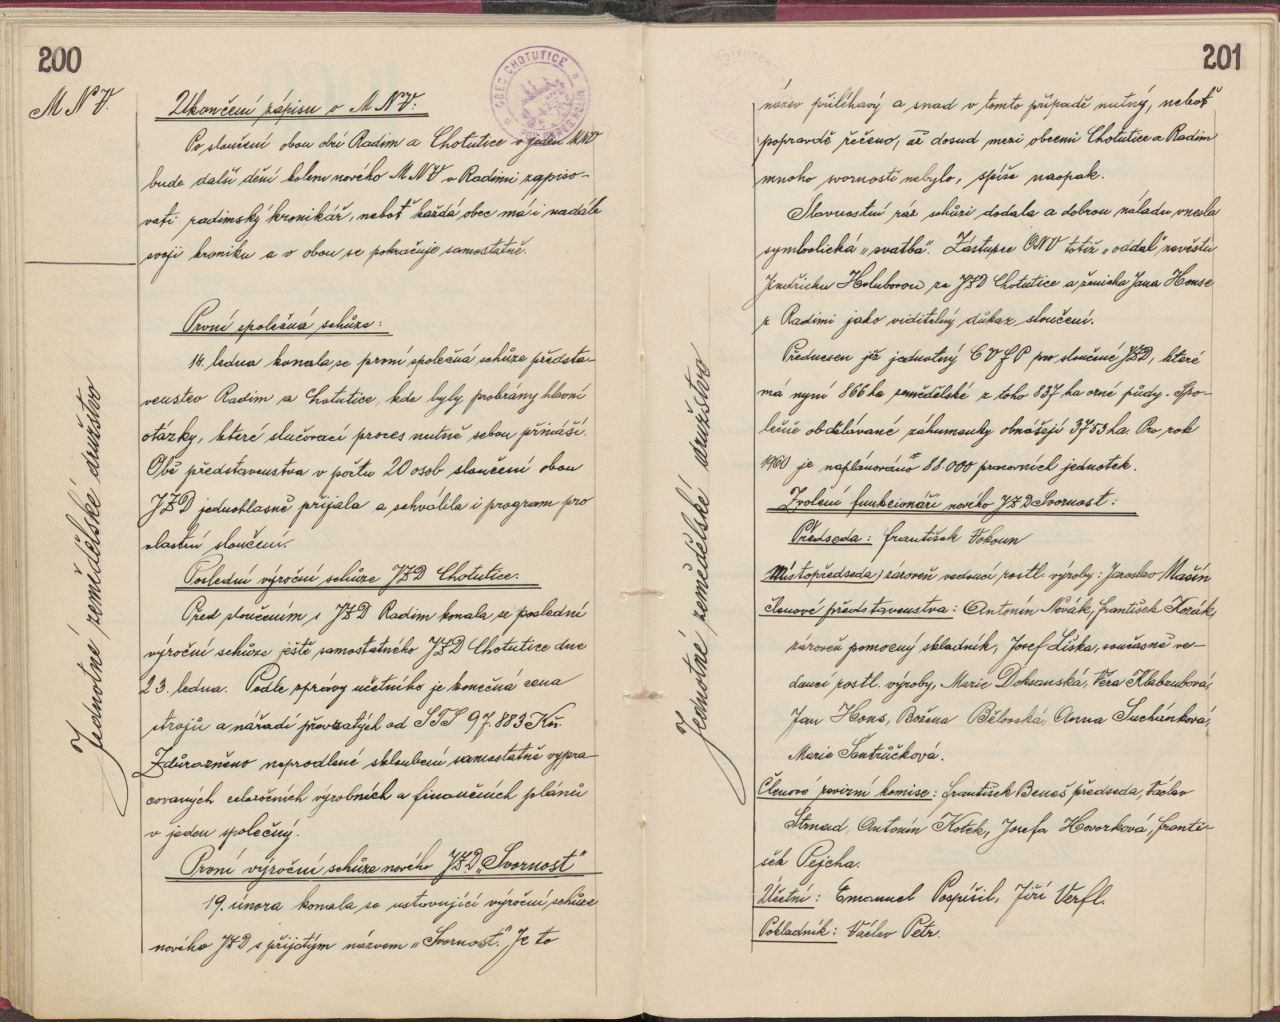 200
M N V.
OBEC CHOTUTICE
Ukončení zápisu o M N V:
Po sloučení obou obcí Radim a Chotutice v jeden MNV
bude další dění kolem nového M N V v Radimi zapiso-
vati radimský kronikář, neboť každá obec má i nadále
svoji kroniku a v obou se pokračuje samostatně.
Jednotné zemědělské družstvo
První společná schůze:
14. ledna konala se první společná schůze předsta-
venstev Radim a Chotutice, kde byly probrány hlavní
otázky, které slučovací proces nutně sebou přináší.
Obě představenstva v počtu 20 osob sloučení obou
JZD jednohlasně přijala a schválila i program pro
vlastní sloučení.
Poslední výroční schůze JZD Chotutice.
Před sloučením s JZD Radim konala se poslední
výroční schůze ještě samostatného JZD Chotutice dne
23. ledna. Podle zprávy účetního je konečná cena
strojů a nářadí převzatých od STS 97.883 Kčs.
Zdůrazněno neprodlené skloubení samostatně vypra-
covaných celoročních výrobních a finančních plánů
v jeden společný.
První výroční schůze nového JZD „Svornost"
19. února konala se ustavující výroční schůze
nového JZD s přijatým názvem „Svornost". Je to
201
Jednotné zemědělské družstvo
název přiléhavý a snad v tomto případě nutný, neboť
popravdě řečeno, až dosud mezi obcemi Chotutice a Radim
mnoho svornosti nebylo, spíše naopak.
Slavnostní ráz schůzi dodala a dobrou náladu vnesla
symbolická „svatba". Zástupce ONV totiž „oddal" nevěstu
Jindřichu Holubovou za JZD Chotutice a ženicha Jana Honse
z Radimi jako viditelný důkaz sloučení.
Přednesen již jednotný CVFP pro sloučené JZD, které
má nyní 866 ha zemědělské z toho 837 ha orné půdy. Spo-
lečně obdělávané záhumenky obnášejí 37 53 ha. Pro rok
1960 je naplánováno 88.000 pracovních jednotek.
Zvolení funkcionáři nového JZD Svornost:
Předseda: František Vokoun
Místopředseda) zároveň vedoucí rostl. výroby: Jaroslav Mašín
Členové představenstva: Antonín Novák, František Kozák,
zároveň pomocný skladník, Josef Liška, současně ve-
doucí rostl. výroby, Marie Doksanská, Věra Klabzubová,
Jan Hons, Božena Bělovská, Anna Suchánková,
Marie Šantrůčková.
Členové revizní komise: František Beneš předseda, Václav
Strnad, Antonín Kolek, Josefa Hovorková, Franti-
šek Pejcha.
Účetní: Emanuel Pospíšil, Jiří Verfl.
Pokladník: Václav Petr.